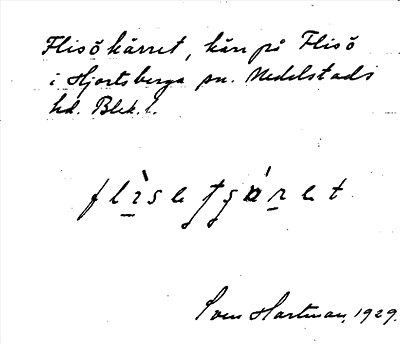 Flisökärret, kärr på Flisö
i Hjortsberga sn. Medelstads
hd. Blek. l.
flìsetʃɡáret
Sven Hartman, 1929.